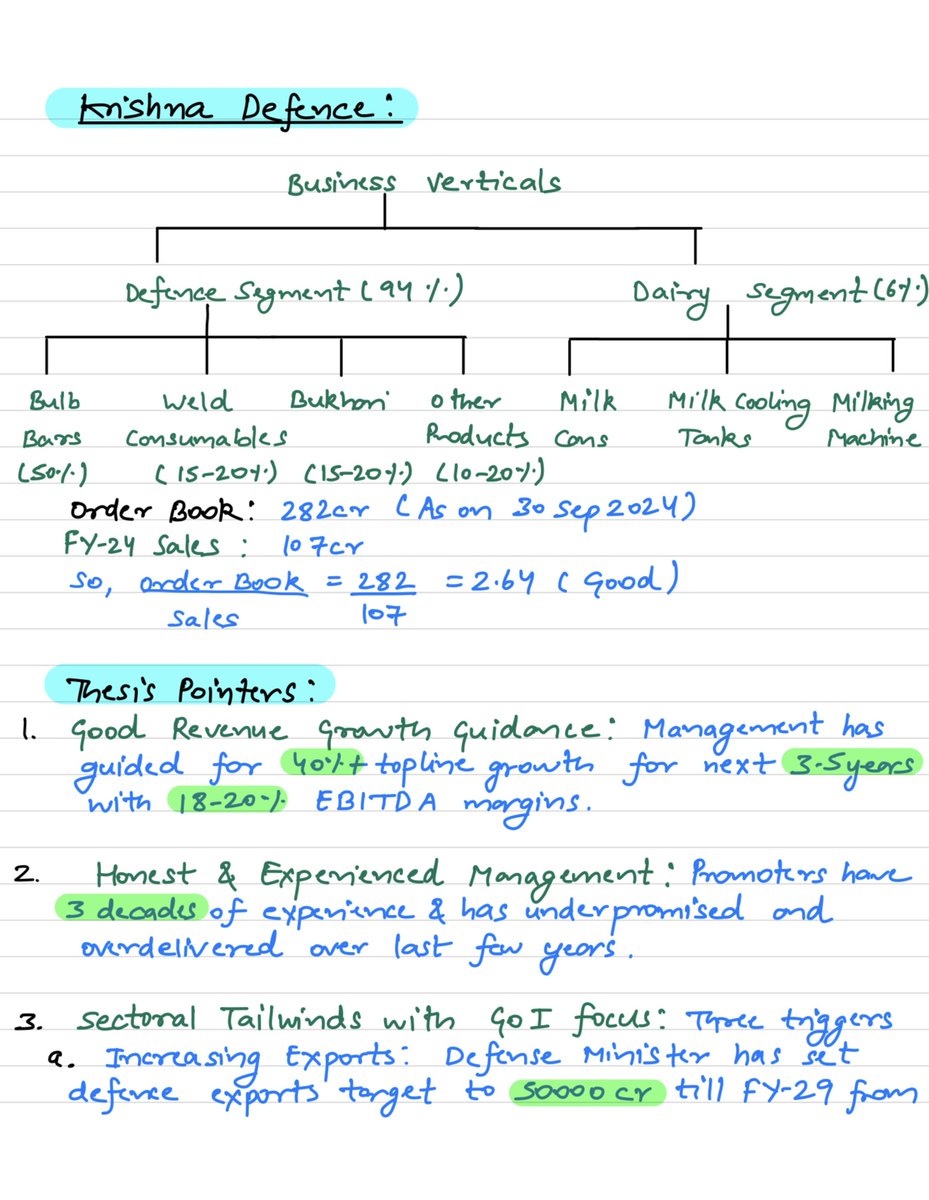 Krishna Defence:
Business Verticals
Defence Segment (94%) Dairy Segment (6%)
Bulb Weld Bukhari Other Milk Milk Cooling Milking
Bars Consumables Products Cans Tanks Machine
(50%) (15-20%) (15-20%) (10-20%)
Order Book: 282cr (As on 30 Sep 2024)
FY-24 Sales : 107cr
So, Order Book = 282 = 2.64 (Good)
Sales 107
Thesis Pointers:
1. Good Revenue Growth Guidance: Management has
guided for 40%+ topline growth for next 3-5years
with 18-20% EBITDA margins.
2. Honest & Experienced Management: Promoters have
3 decades of experience & has underpromised and
overdelivered over last few years.
3. Sectoral Tailwinds with GoI focus: Three triggers
a. Increasing Exports: Defense Minister has set
defence exports target to 50000 cr till FY-29 from